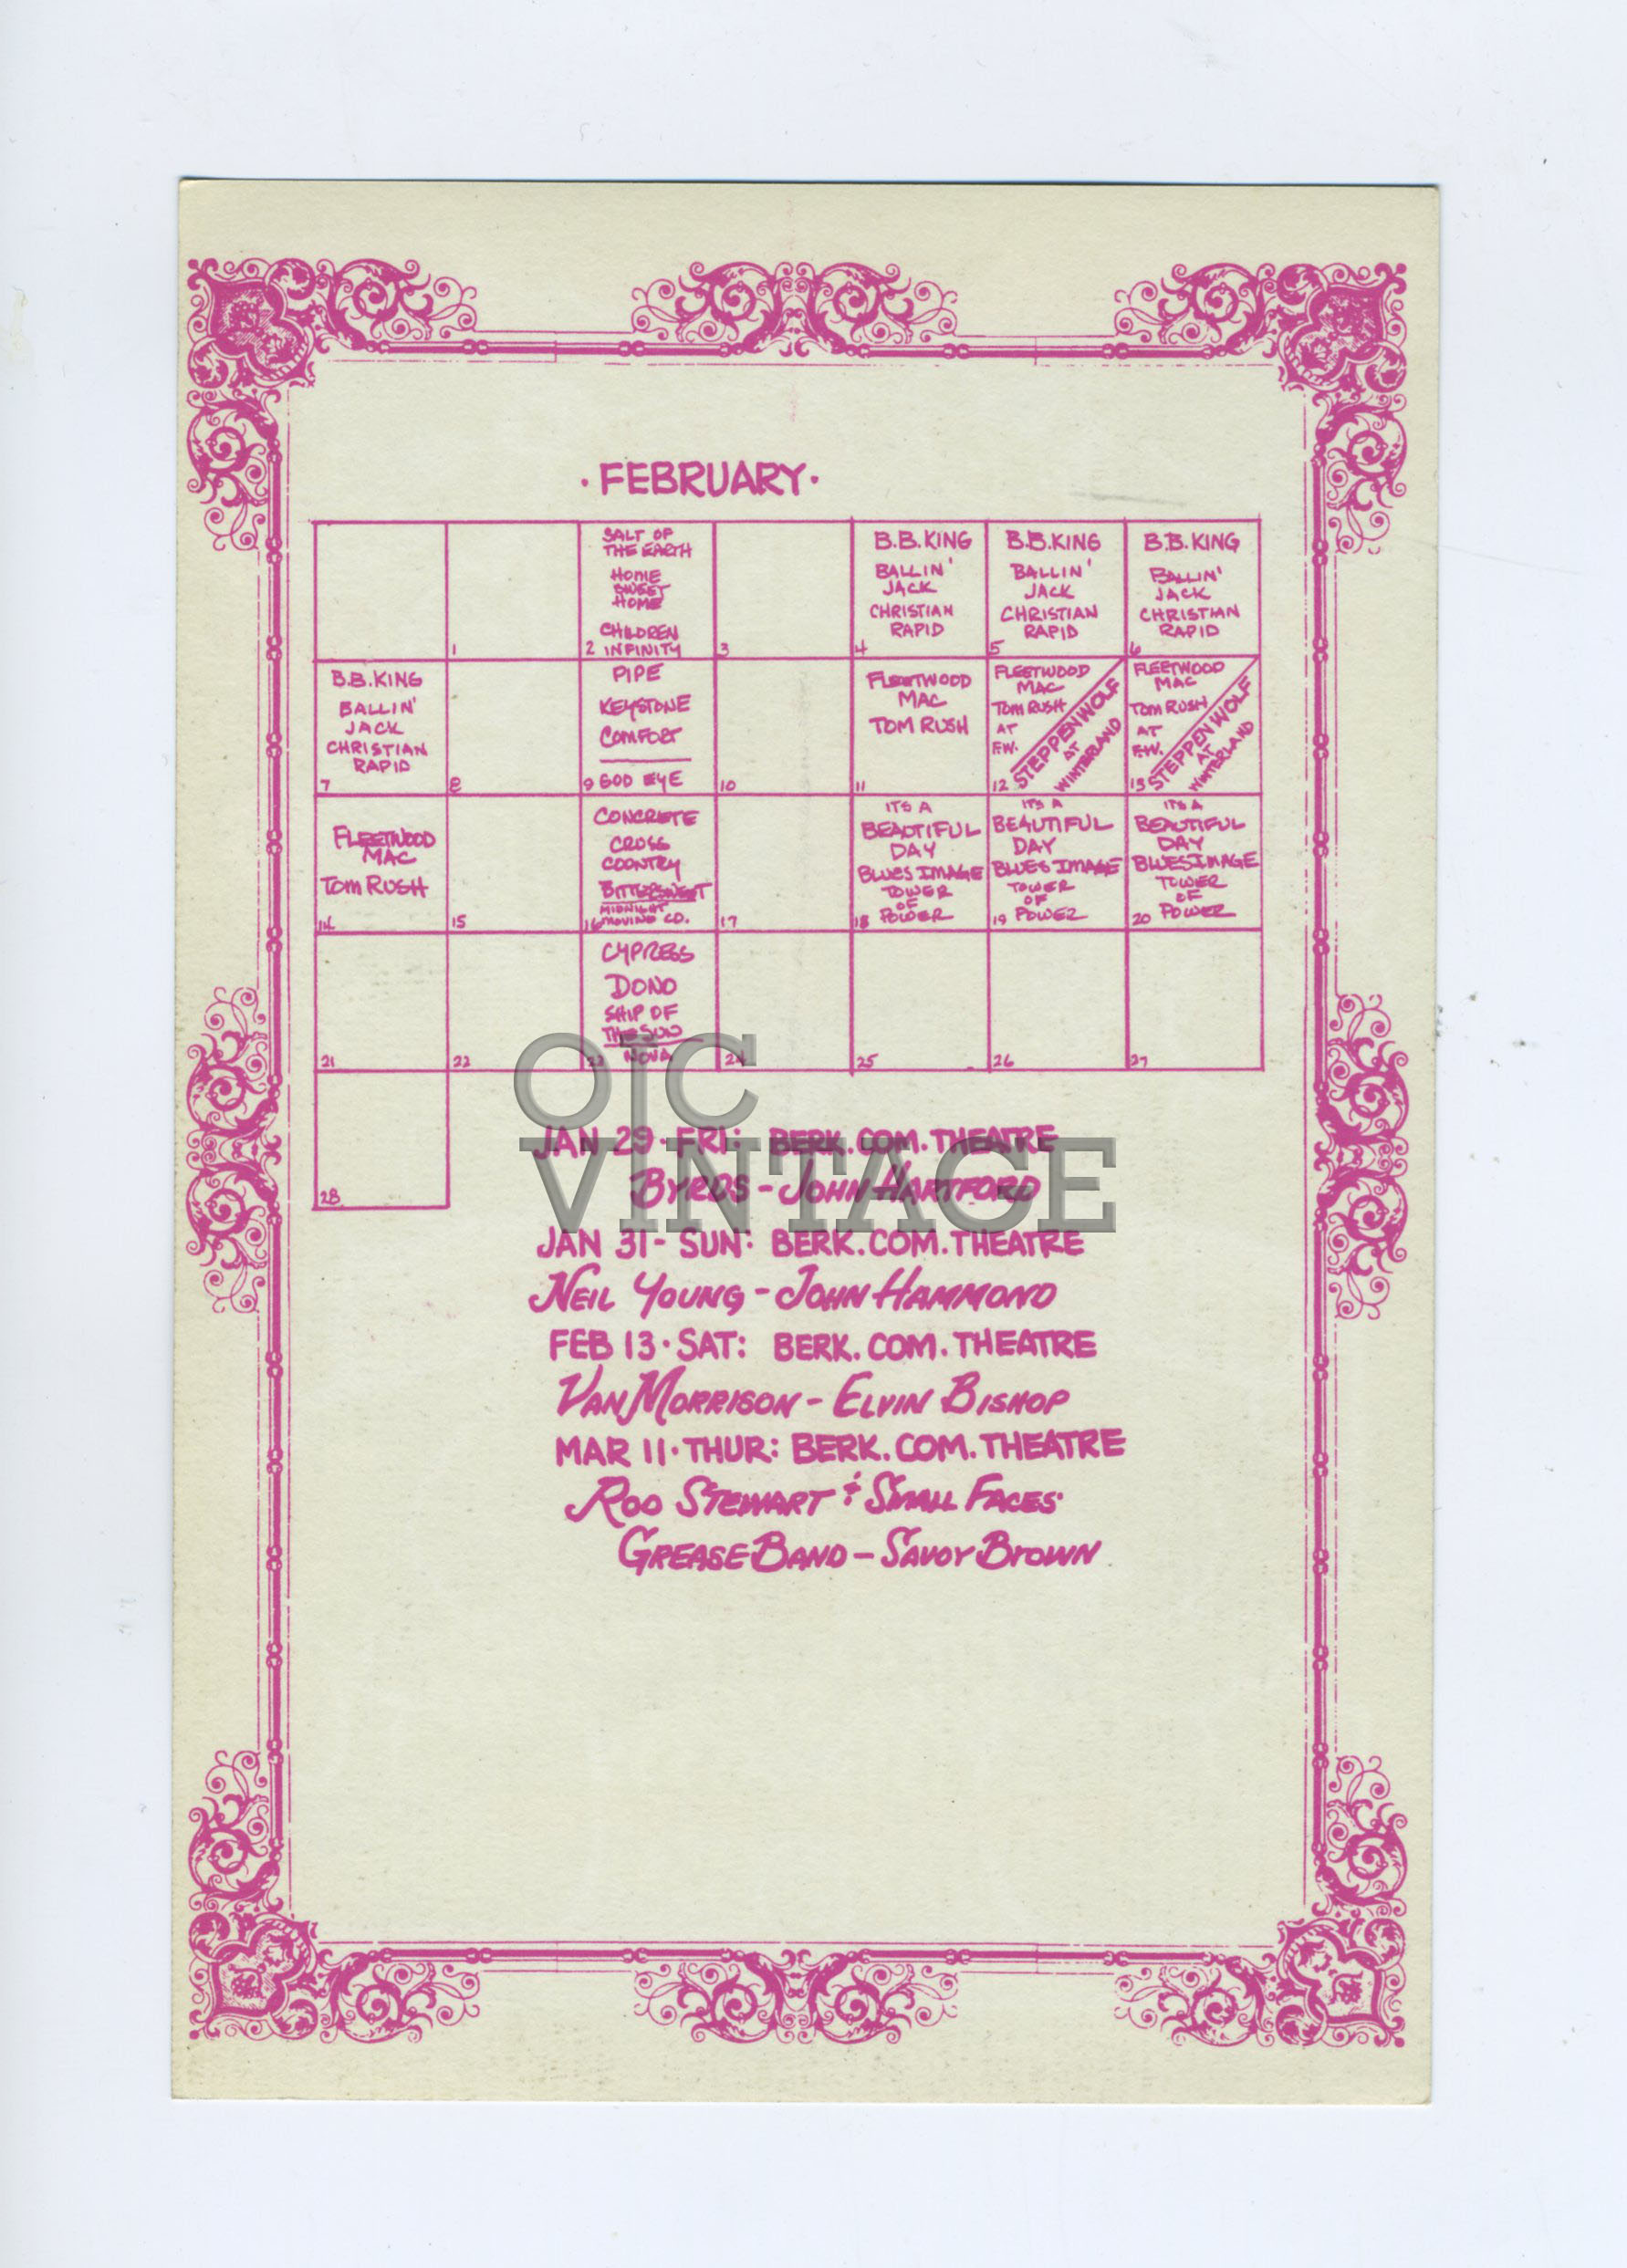 · FEBRUARY ·
1
SALT OF
THE EARTH
HOME
SWEET
HOME
CHILDREN
2 INFINITY
3
B.B. KING
BALLIN'
JACK
CHRISTIAN
RAPID
4
B.B. KING
BALLIN'
JACK
CHRISTIAN
RAPID
5
B.B. KING
BALLIN'
JACK
CHRISTIAN
RAPID
6
B.B. KING
BALLIN'
JACK
CHRISTIAN
RAPID
7
8
PIPE
KEYSTONE
COMFORT
9 GOD EYE
10
FLEETWOOD
MAC
TOM RUSH
11
FLEETWOOD
MAC
TOM RUSH
AT
F.W.
12
STEPPENWOLF
AT
WINTERLAND
FLEETWOOD
MAC
TOM RUSH
AT
F.W.
13
STEPPENWOLF
AT
WINTERLAND
FLEETWOOD
MAC
TOM RUSH
14
15
CONCRETE
CROSS
COONTRY
BITTERSWEET
MIDNIGHT
16 MOVING CO.
17
ITS A
BEAUTIFUL
DAY
BLUES IMAGE
TOWER
OF
18 POWER
ITS A
BEAUTIFUL
DAY
BLUES IMAGE
TOWER
OF
19 POWER
ITS A
BEAUTIFUL
DAY
BLUES IMAGE
TOWER
OF
20 POWER
21
22
CYPRESS
DONO
SHIP OF
THE SUN
23 NOVA
24
25
26
27
28
OIC
VINTAGE
JAN 29 · FRI: BERK. COM. THEATRE
BYRDS - JOHN HARTFORD
JAN 31 - SUN: BERK. COM. THEATRE
NEIL YOUNG - JOHN HAMMOND
FEB 13 · SAT: BERK. COM. THEATRE
VAN MORRISON - ELVIN BISHOP
MAR 11 · THUR: BERK. COM. THEATRE
ROD STEWART & SMALL FACES
GREASE BAND - SAVOY BROWN